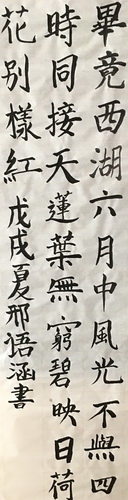 畢竟西湖六月中風光不與四
時同接天蓮葉無窮碧映日荷
花別樣紅戊戌夏邢語涵書